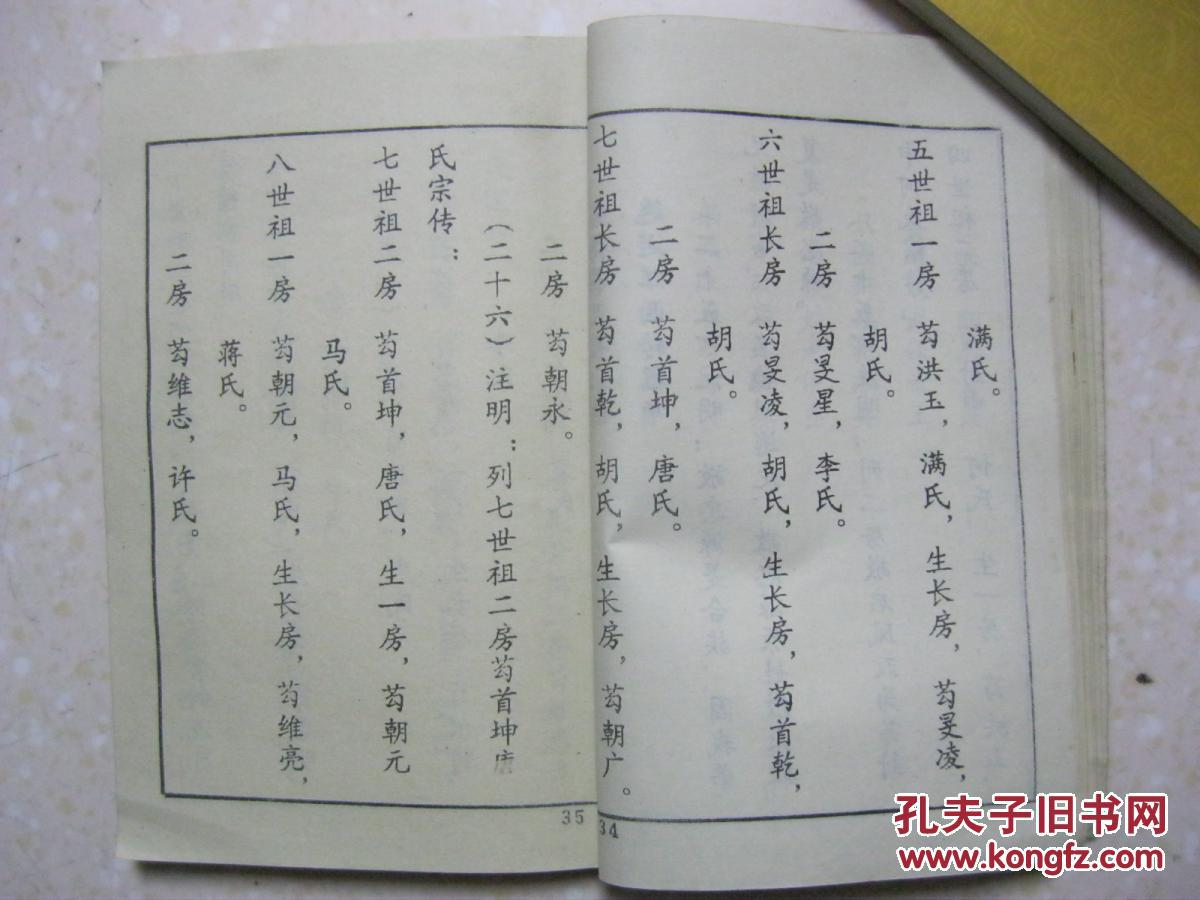 满氏。
五世祖一房 芶洪玉，满氏，生长房，芶旻凌，
胡氏。
二房 芶旻星，李氏。
六世祖长房 芶旻凌，胡氏，生长房，芶首乾，
胡氏。
二房 芶首坤，唐氏。
七世祖长房 芶首乾，胡氏，生长房，芶朝广。
34
二房 芶朝永。
（二十六）注明：列七世祖二房芶首坤唐
氏宗传：
七世祖二房 芶首坤，唐氏，生一房，芶朝元
马氏。
八世祖一房 芶朝元，马氏，生长房，芶维亮，
蒋氏。
二房 芶维志，许氏。
35
孔夫子旧书网
www.kongfz.com